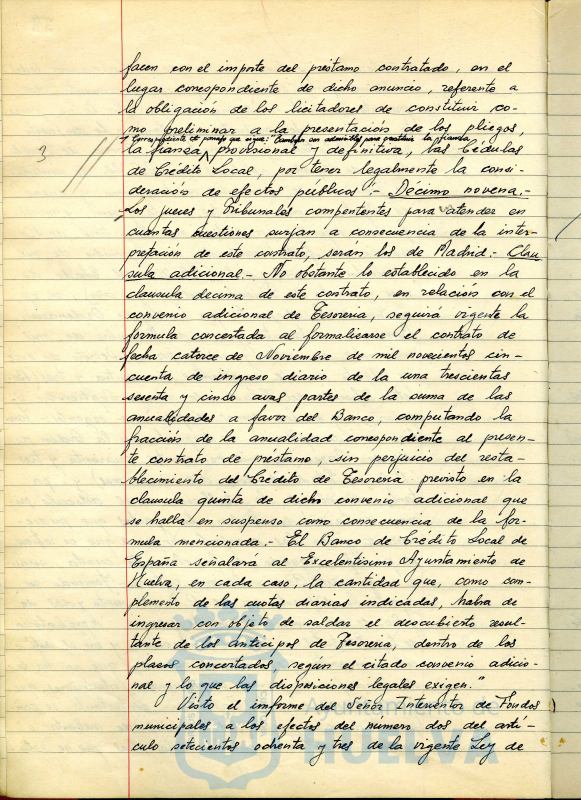 facen con el importe del préstamo contratado, en el
lugar correspondiente de dicho anuncio, referente a
la obligación de los licitadores de constituir co-
mo preliminar a la presentación de los pliegos,
también son admisibles para constituir la fianza
3
la fianza provisional y definitiva, las Cédulas
de Crédito Local, por tener legalmente la consi-
deración de efectos públicos".- Décimo novena.-
Los jueces y Tribunales compententes para atender en
cuantas cuestiones surjan a consecuencia de la inter-
pretación de este contrato, serán los de Madrid.- Clau
sula adicional.- No obstante lo establecido en la
clausula decima de este contrato, en relación con el
convenio adicional de Tesoreria, seguirá vigente la
formula concertada al formalizarse el contrato de
fecha catorce de Noviembre de mil novecientos cin-
cuenta de ingreso diario de la una trescientas
sesenta y cinco avas partes de la suma de las
anualidades a favor del Banco, computando la
fracción de la anualidad correspondiente al presen-
te contrato de préstamo, sin perjuicio del resta-
blecimiento del Crédito de Tesoreria previsto en la
clausula quinta de dicho convenio adicional que
se halla en suspenso como consecuencia de la for-
mula mencionada.- El Banco de Crédito Local de
España señalará al Excelentisimo Ayuntamiento de
Huelva, en cada caso, la cantidad que, como com-
plemento de las cuotas diarias indicadas, habra de
ingresar con objeto de saldar el descubierto resul-
tante de los anticipos de Tesoreria, dentro de los
plazos concertados, segun el citado convenio adicio-
nal y lo que las disposiciones legales exigen."
Visto el informe del Señor Interventor de Fondos
municipales a los efectos del número dos del artí-
culo setecientos ochenta y tres de la vigente Ley de
Ayuntamiento de
HUELVA